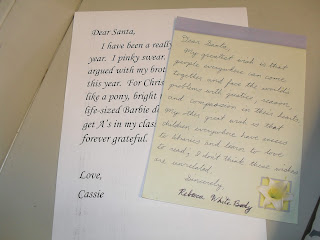 Dear Santa,
I have been a really
year. I pinky swear.
argued with my brot
this year. For Christ
like a pony, bright
life-sized Barbie d
get A's in my class
forever grateful.
Love,
Cassie
Dear Santa,
My greatest wish is that
people everywhere can come
together and face the world's
problems with justice, reason,
and compassion in their hearts.
My other great wish is that
children everywhere have access
to libraries and learn to love
to read; I don't think these wishes
are unrelated.
Sincerely,
Rebecca White Body